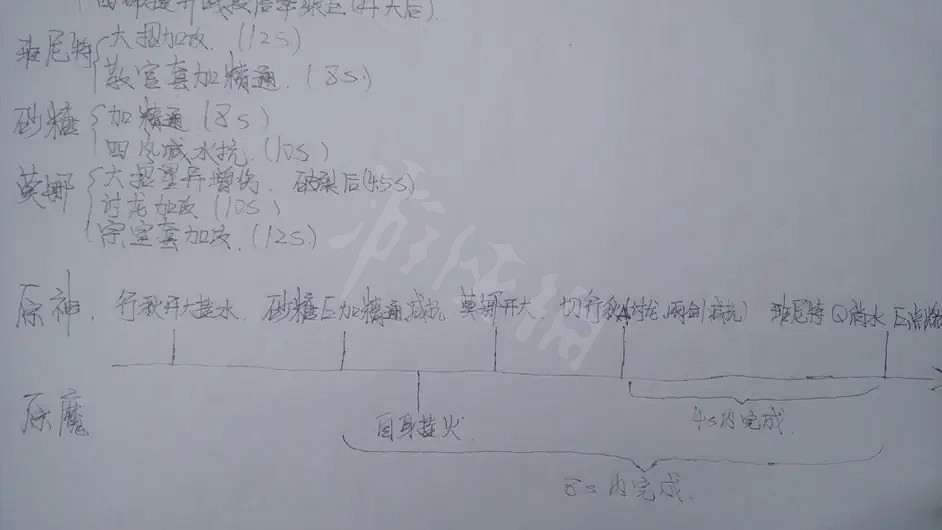 班尼特 大招加攻.(12s)
教官套加精通.(8s)
砂糖 加精通(8s)
四风减水抗.(10s)
莫娜 大招星异增伤. 破裂后(4.5s)
讨龙加攻(10s)
宗室套加攻.(12s)
原神. 行秋开大挂水. 砂糖E加精通,减抗 莫娜开大. 切行秋(讨龙,两剑减抗) 班尼特Q蒸水 E点燃
原魔 自身挂火. 4s内完成.
8s内完成.
游侠网